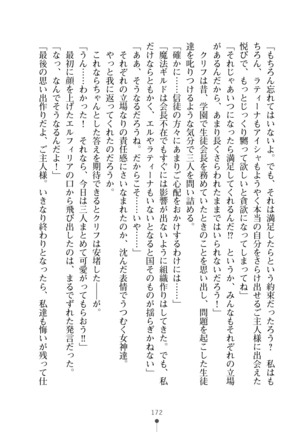 「もちろん忘れてはいないよ。でも、それは満足したらという約束だったろう？　私はも
ちろん、ラティーナもアイシャもようやく本当の自分をさらけ出せるご主人様に出会えた
悦びで、もっとじっくり嬲って欲しいと貪欲になってしまいてね」
「それじゃあいつになったら満足してくれるんだ⁉　というか、みんなもそれぞれの立場
があるんだから、あまり長くさらわれたままではいられないだろう！」
クリフは昔、学園で生徒会長を務めていたときのことを思い出し、問題を起こした生徒
達を叱りつけるような気分で三人を問い詰める。
「確かに……信徒の方々にあまりご心配をおかけするわけには……」
「魔法ギルドはすぐには影響が出ないように組織作りはしてきた。でも、僕がいないの
だけならともかく、エルやラティーナもいないとなると国そのものが揺らぎかねない」
「ああ。そうなるだろうな。だからこそ……いや……」
それぞれの立場なりの責任感にさいなまれているのか、沈んだ表情でうつむく女神達。
これならちゃんとした答えを期待できるとクリフは安堵したのだが。
「うん……わかった！　それなら、今日は三人まとめて可愛がってもらおう‼」
最初に顔を上げたエルフィリアの口から飛び出したのは、まるでずれた発言だった。
「なっ、なんでそうなるんだよ！」
「最後の思い出作りだよ。ご主人様、いきなり終わりとなると、私達も悔いが残って仕
172